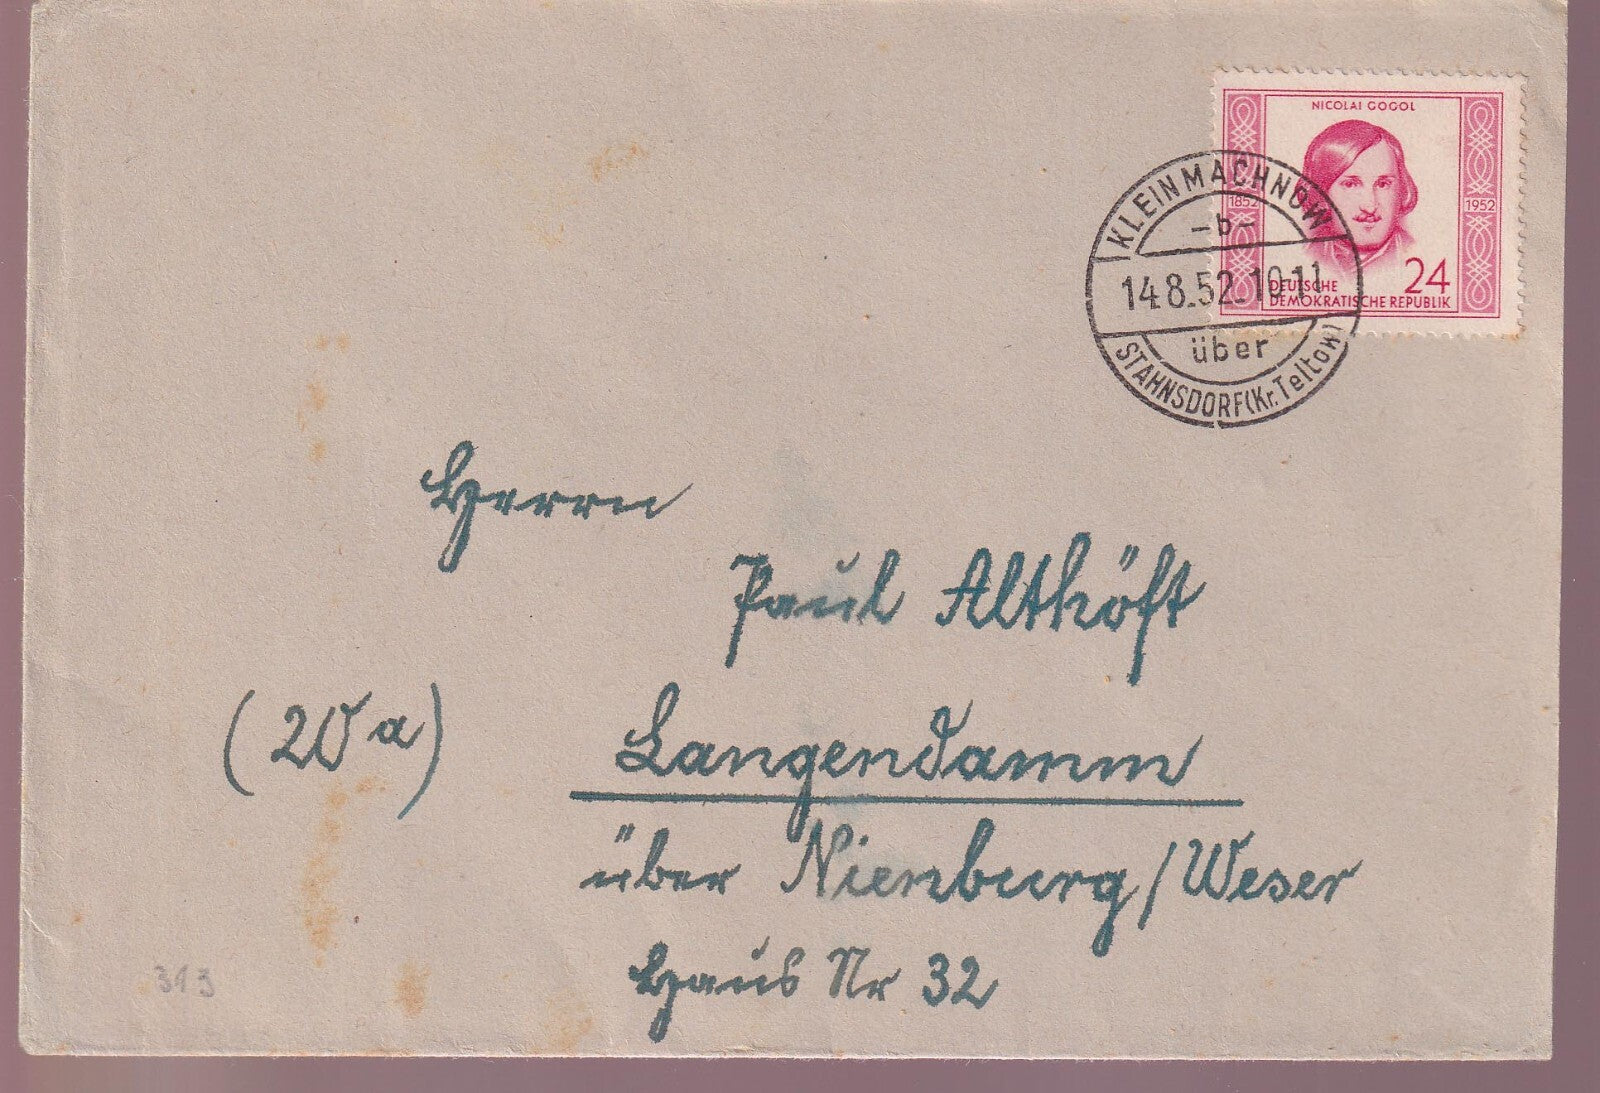 NICOLAI GOGOL
1852
1952
24
DEUTSCHE
DEMOKRATISCHE REPUBLIK
KLEINMACHNOW
-b-
14.8.52.10-11
über
STAHNSDORF (Kr. Teltow)
Herrn
Paul Althöft
(20a) Langendamm
über Nienburg/Weser
Haus Nr 32
313